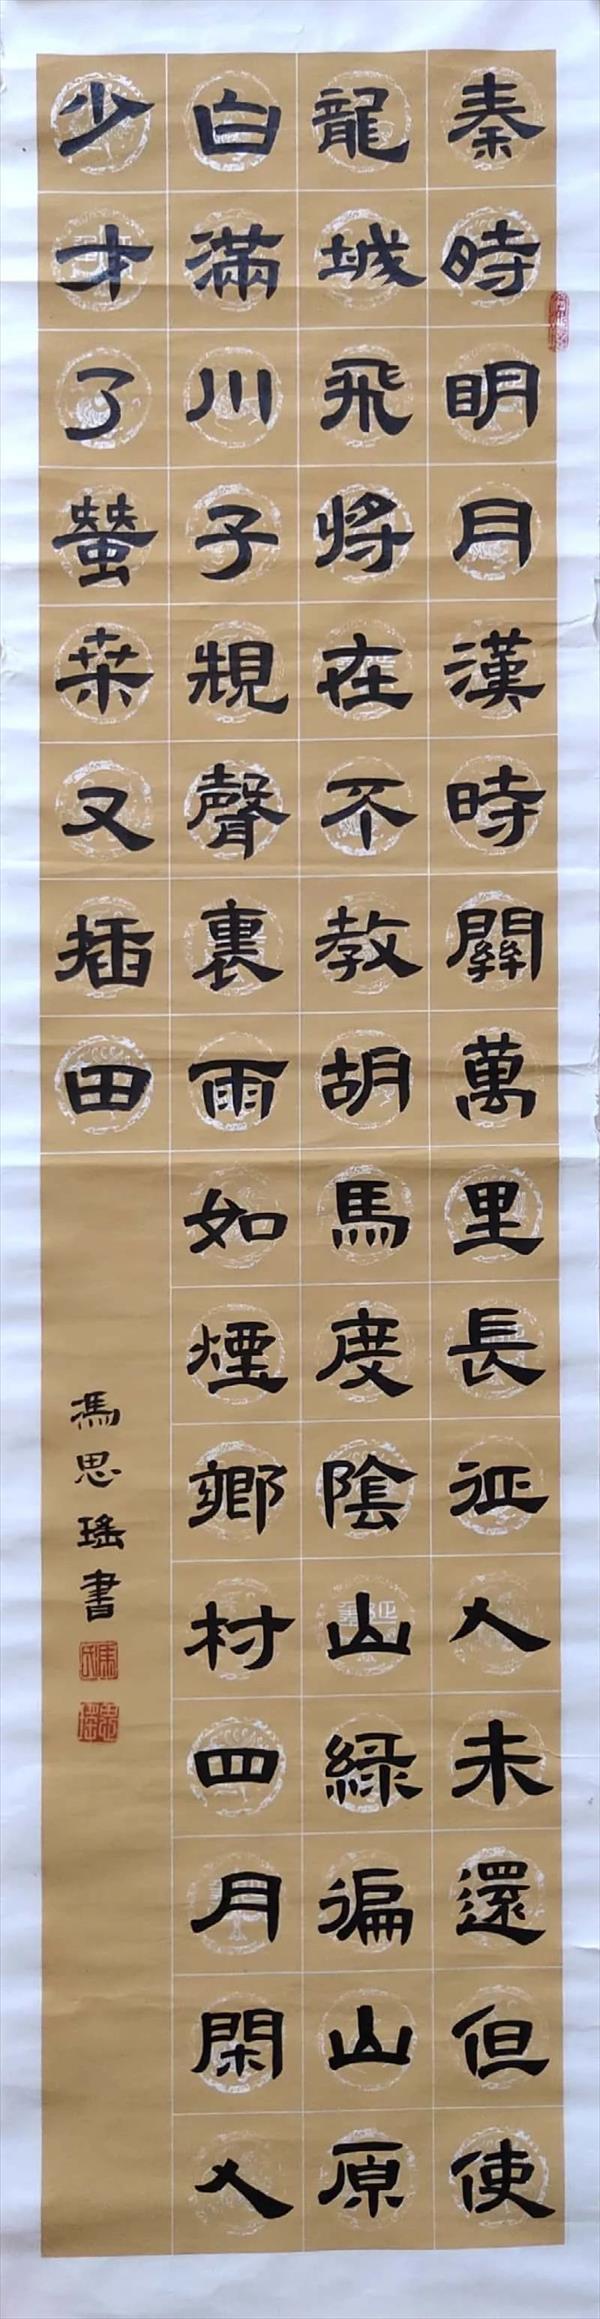 秦時明月漢時關萬里長征人未還但使
龍城飛將在不教胡馬度陰山綠徧山原
白滿川子規聲裏雨如煙鄉村四月閑人
少才了蠶桑又插田
馮思瑤書